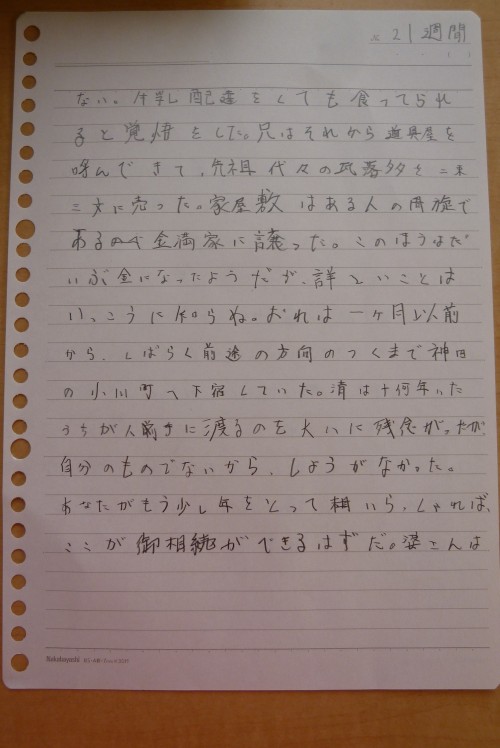 21週間
ない。牛乳配達をしても食ってられ
ると覚悟をした。兄はそれから道具屋を
呼んできて、先祖代々の瓦落多を二束
三文に売った。家屋敷はある人の周旋で
ある金満家に譲った。このほうはだ
いぶ金になったようだが、詳しいことは
いっこうに知らぬ。おれは一ヶ月以前
から、しばらく前途の方向のつくまで神田
の小川町へ下宿していた。清は十何年いた
うちが人手に渡るのを大いに残念がったが、
自分のものでないから、しょうがなかった。
あなたがもう少し年をとって いらっしゃれば、
ここが御相続ができるはずだ。婆さんは
Nakabayashi